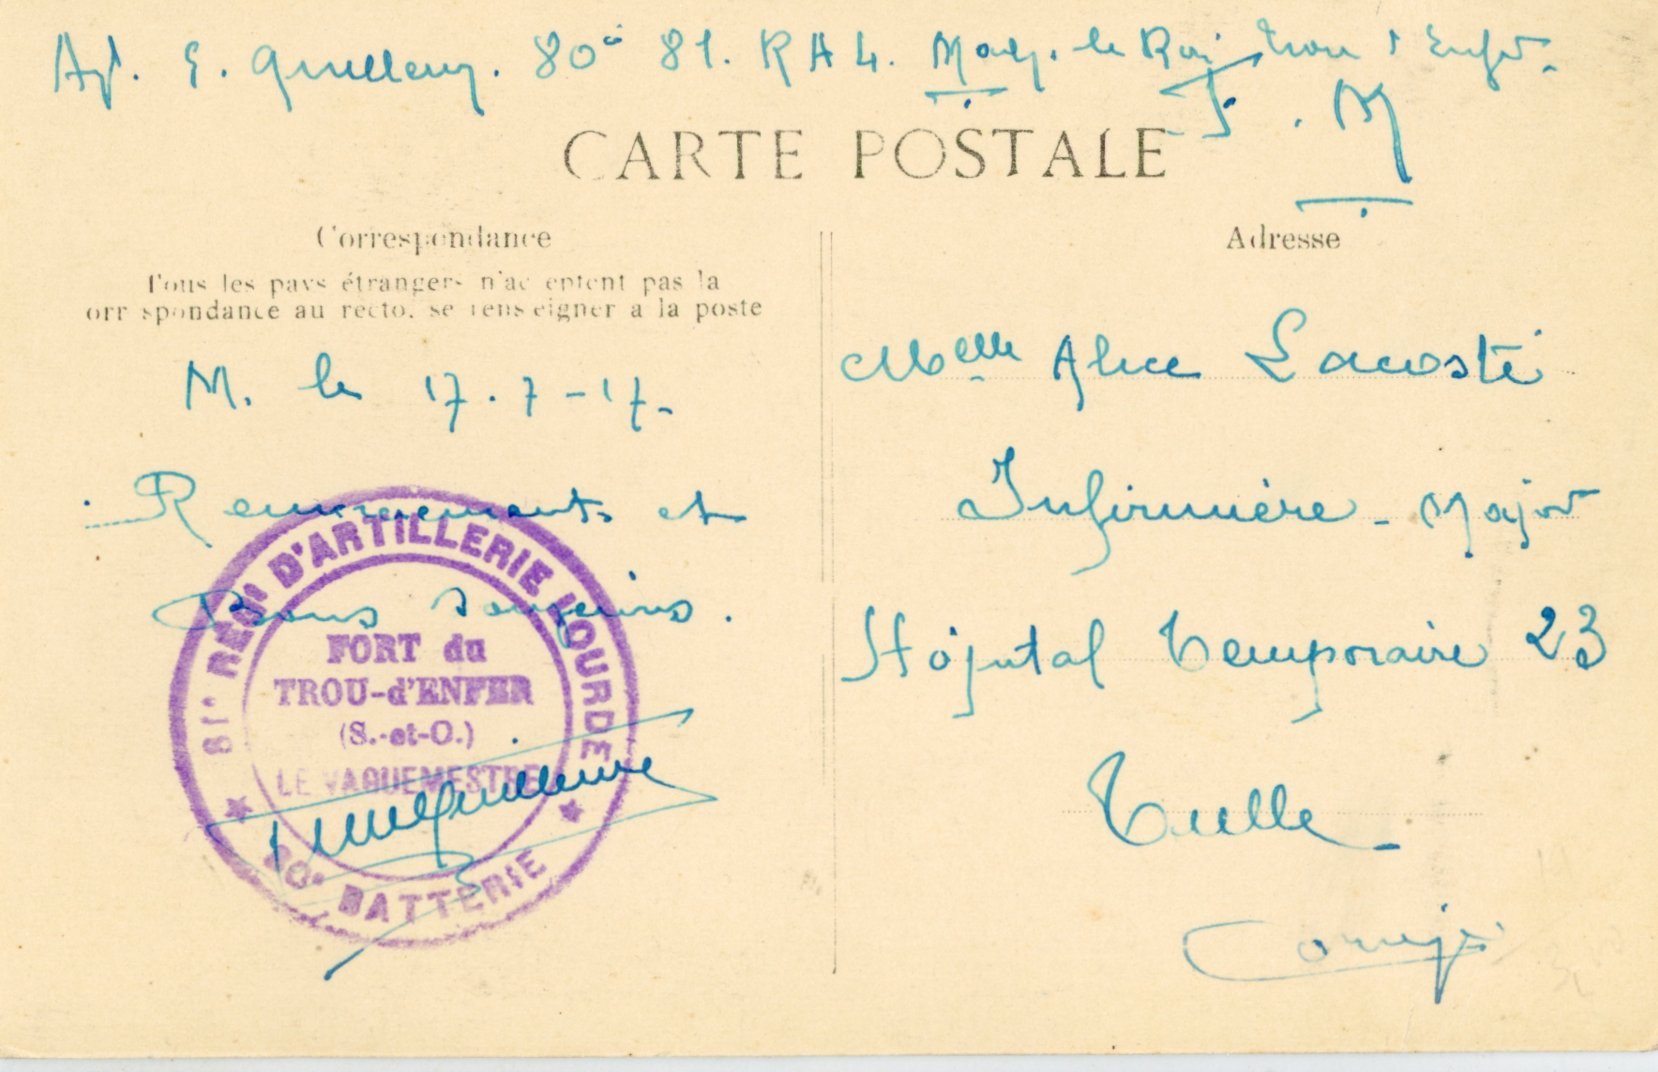 80e 81. R A L. Marly. le Roi Trou d'Enfer.
F. M
CARTE POSTALE
Correspondance
Tous les pays étrangers n'acceptent pas la
correspondance au recto. se renseigner a la poste
M. le 17.7-17-
Remerciements et
Bons souvenirs.
81e RÉGt D'ARTILLERIE LOURDE
FORT du
TROU-d'ENFER
(S.-et-O.)
LE VAGUEMESTRE
80e BATTERIE
Adresse
Melle Alice Lacoste
Infirmière-Major
Hôpital Temporaire 23
Tulle
Corrèze